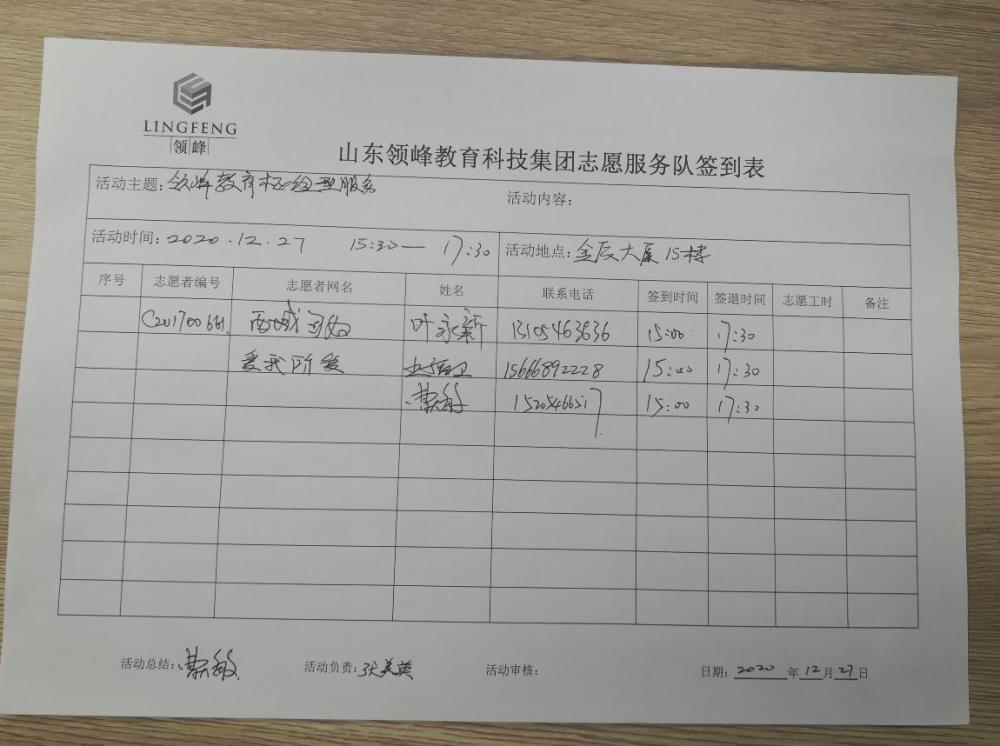 LINGFENG
领峰
山东领峰教育科技集团志愿服务队签到表
活动主题：领峰教育 服务
活动内容：
活动时间：2020.12.27 15:30—17:30
活动地点：金辰大厦15楼
序号 志愿者编号 志愿者网名 姓名 联系电话 签到时间 签退时间 志愿工时 备注
西城 叶永新 13105463636 15:00 17:30
15666892228 15:00 17:30
15:00 17:30
活动总结：
活动负责：张美英
活动审核：
日期：2020年12月27日